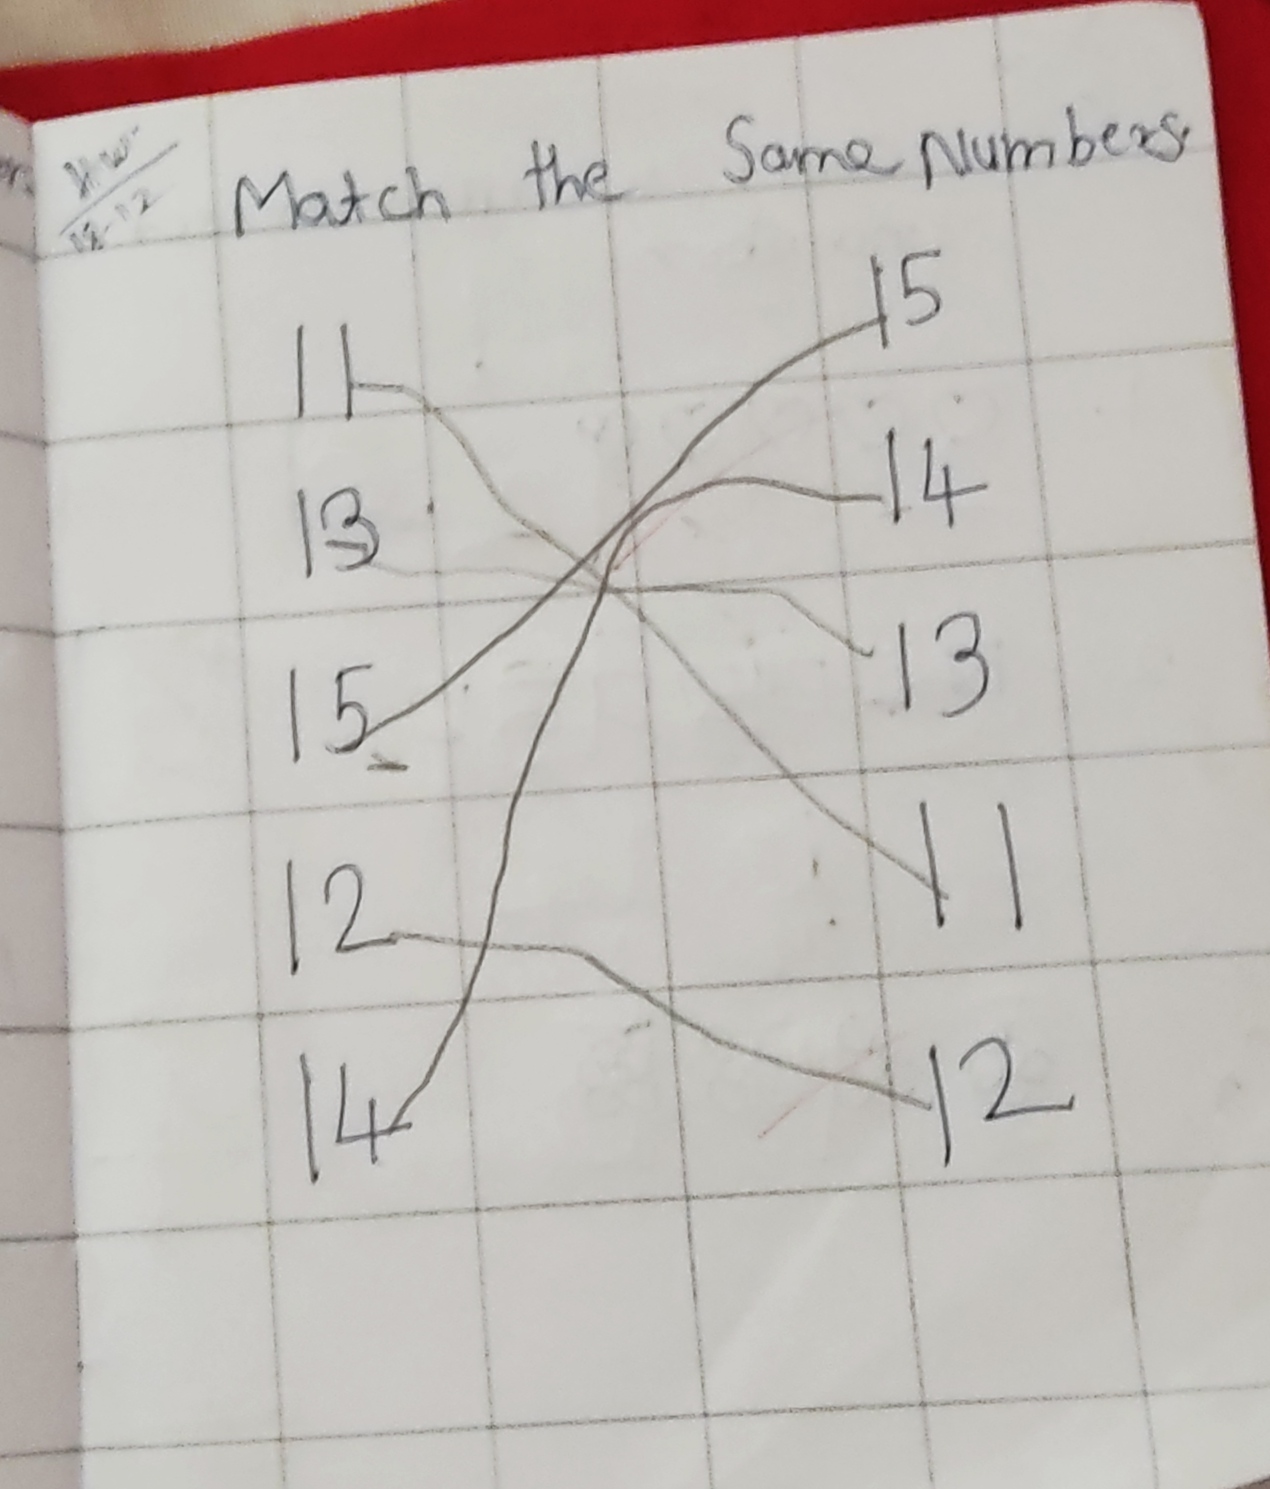 H.W
18-12
Match the Same Numbers
11 15
13 14
15 13
12 11
14 12